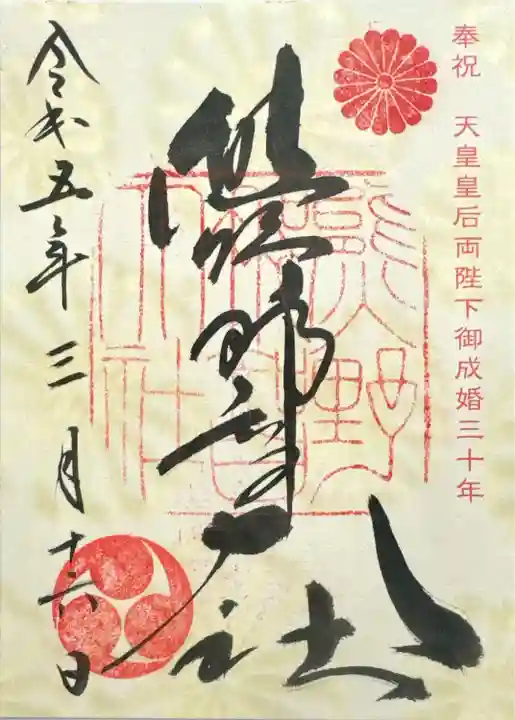 奉祝 天皇皇后両陛下御成婚三十年
熊野
社
令和五年三月十六日